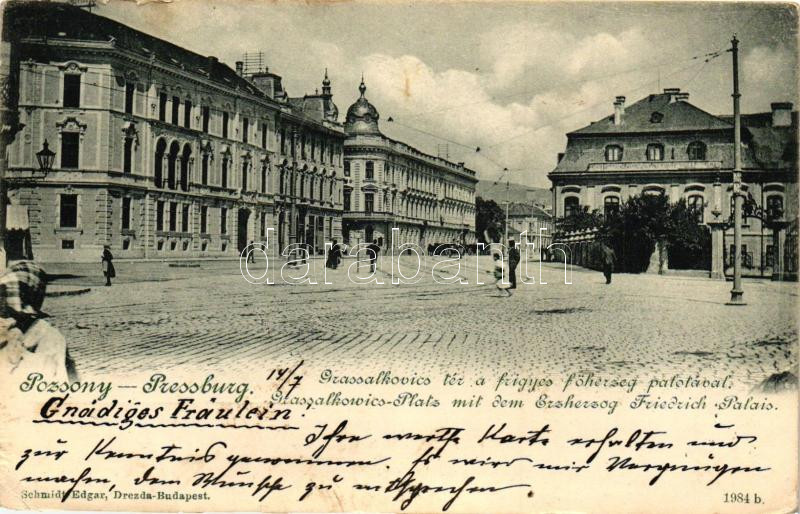 darabanth.com
Pozsony — Pressburg.
14/7
Grassalkovics tér a frigyes főherzeg palotával.
Grassalkowics-Platz mit dem Erzherzog Friedrich-Palais.
Gnädiges Fräulein!
Ihre werthe Karte erhalten und
zur Kenntnis genommen. Es wird mir Vergnügen
machen, dem Wunsche zu entsprechen
Schmidt Edgar, Drezda-Budapest.
1984 b.